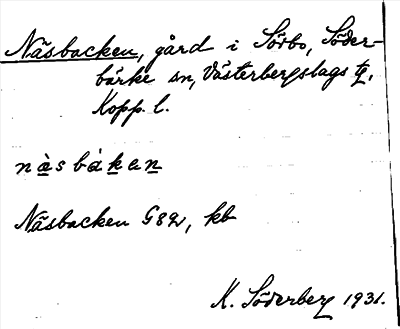 Näsbacken, gård i Sörbo, Söder-
bärke sn, Västerbergslags tg,
Kopp. l.
nàsbáken
Näsbacken G82, kb
K. Söderberg 1931.